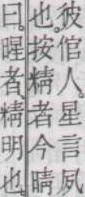 彼倌人。星言夙
也。按精者今晴
曰。暒者精明也。